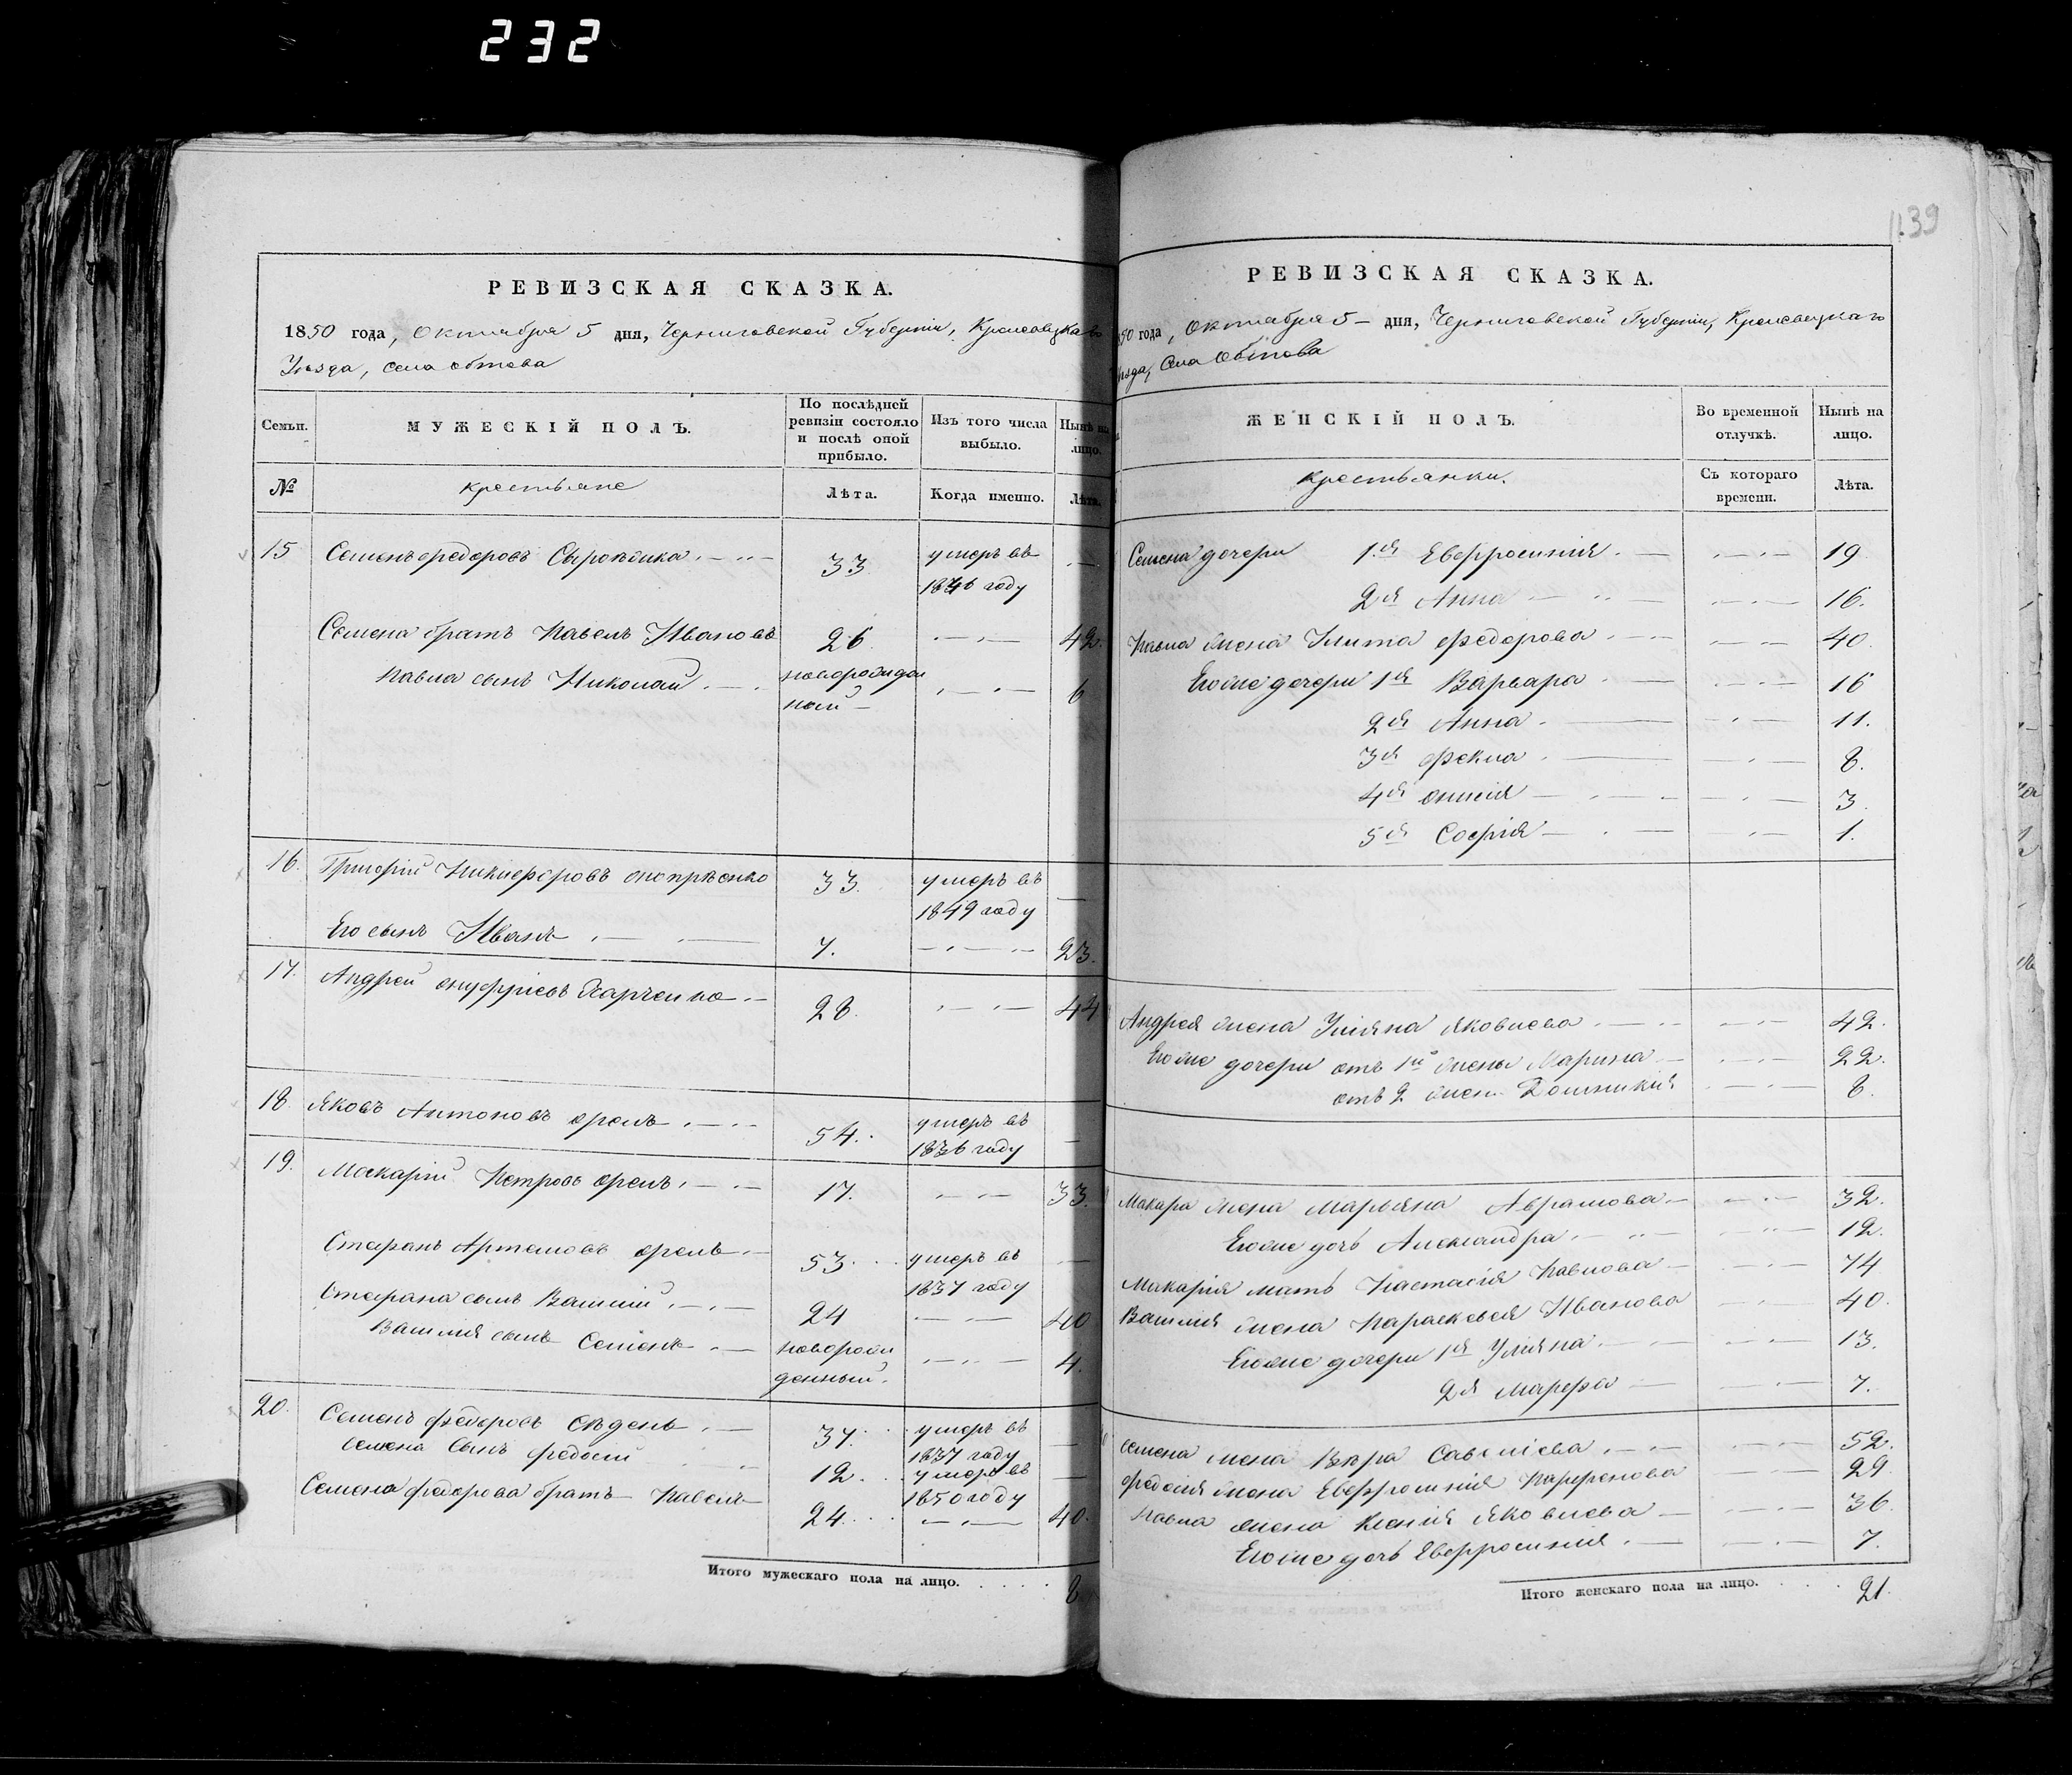 232
РЕВИЗСКАЯ СКАЗКА.
1850 года, Октября 5 дня, Черниговской Губерніи, Кролевецкаго
Уѣзда, села Обтова
Семьи.
МУЖЕСКІЙ ПОЛЪ.
По послѣдней
ревизіи состояло
и послѣ оной
прибыло.
Изъ того числа
выбыло.
Нынѣ на
лицо.
№
крестьяне
Лѣта.
Когда именно.
Лѣта.
15 Семенъ Федоровъ 33 умеръ въ
1846 году
Семена братъ Павелъ Ивановъ 26 42.
Павла сынъ Николай новорожден
ной 6
16. Григорій Никифоровъ 33. умеръ въ
1849 году
Его сынъ Иванъ 7. 23.
17. Андрей Онуфріевъ Харченко 28. 44
18. Яковъ Антоновъ Орелъ 54. умеръ въ
1836 году
19. Макарій Петровъ Орелъ 17. 33.
Стефанъ Артемовъ Орелъ 53. умеръ въ
1837 году
Стефана сынъ Василій 24 40
Василія сынъ Семенъ новорож
денный. 4.
20. Семенъ Федоровъ Сѣдень 37. умеръ въ
1837 году
Семена сынъ Федосій 12. умеръ въ
1850 году
Семена Федорова братъ Павелъ 24. 40.
Итого мужескаго пола на лицо. 8
1139
РЕВИЗСКАЯ СКАЗКА.
50 года, Октября 5 дня, Черниговской Губерніи, Кролевецкаго
ѣзда, Села Обтова
ЖЕНСКІЙ ПОЛЪ.
Во временной
отлучкѣ.
Нынѣ на
лицо.
крестьянки.
Съ котораго
времени.
Лѣта.
Семена дочери 1я Евфросинія 19
2я Анна 16.
Павла жена Улита Федорова 40
Его же дочери 1я Варвара 16
2я Анна 11.
3я Фекла 8.
4я 3.
5я Софія 1.
Андрея жена Уліяна Яковлева 42.
Его же дочери отъ 1й жены Марина 22.
отъ 2 жен. Домникія 8.
Макара жена Марьяна Аврамова 32.
Его же дочь Александра 12.
Макарія мать Настасія Павлова 74
Василія жена Параскевея Иванова 40.
Его же дочери 1я Уліяна 13.
2я Марфа 7.
Семена жена Вѣра Савеліева 52.
Федосія жена Евфросинія Парфенова 29
Павла жена Ксенія Яковлева 36
Его же дочь Евфросинія 7.
Итого женскаго пола на лицо. 21.